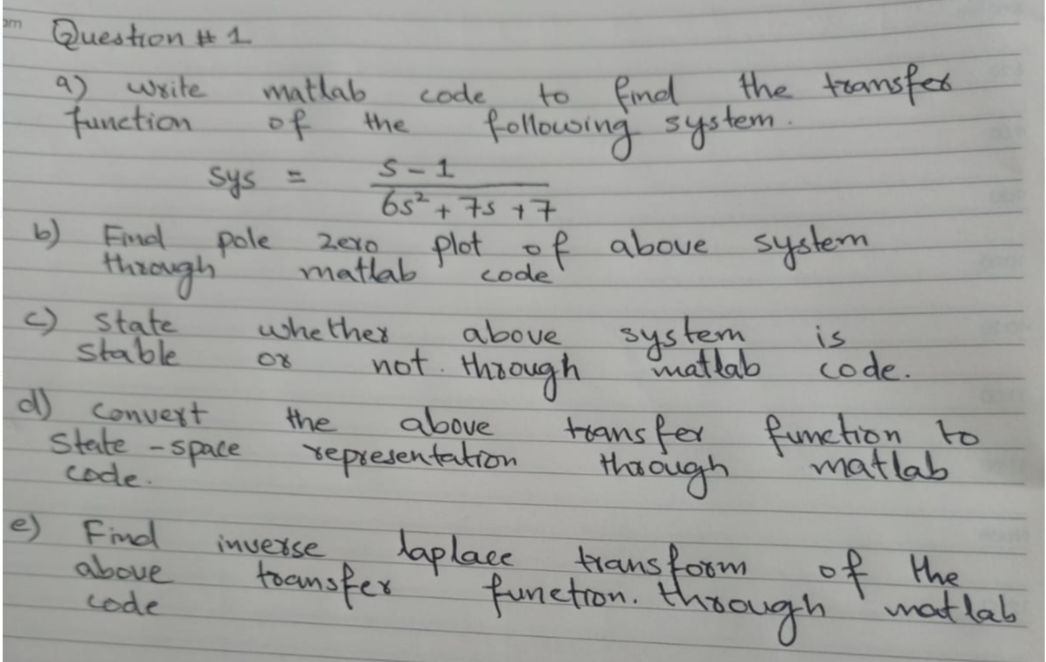 am
Question # 1
a) write matlab code to find the transfer
function of the following system.
sys = s - 1
6s² + 7s + 7
b) Find pole zero plot of above system
through matlab code
c) state whether above system is
stable or not. through matlab code.
d) convert the above transfer function to
state - space representation through matlab
code.
e) Find inverse laplace transform of the
above transfer function. through matlab
code